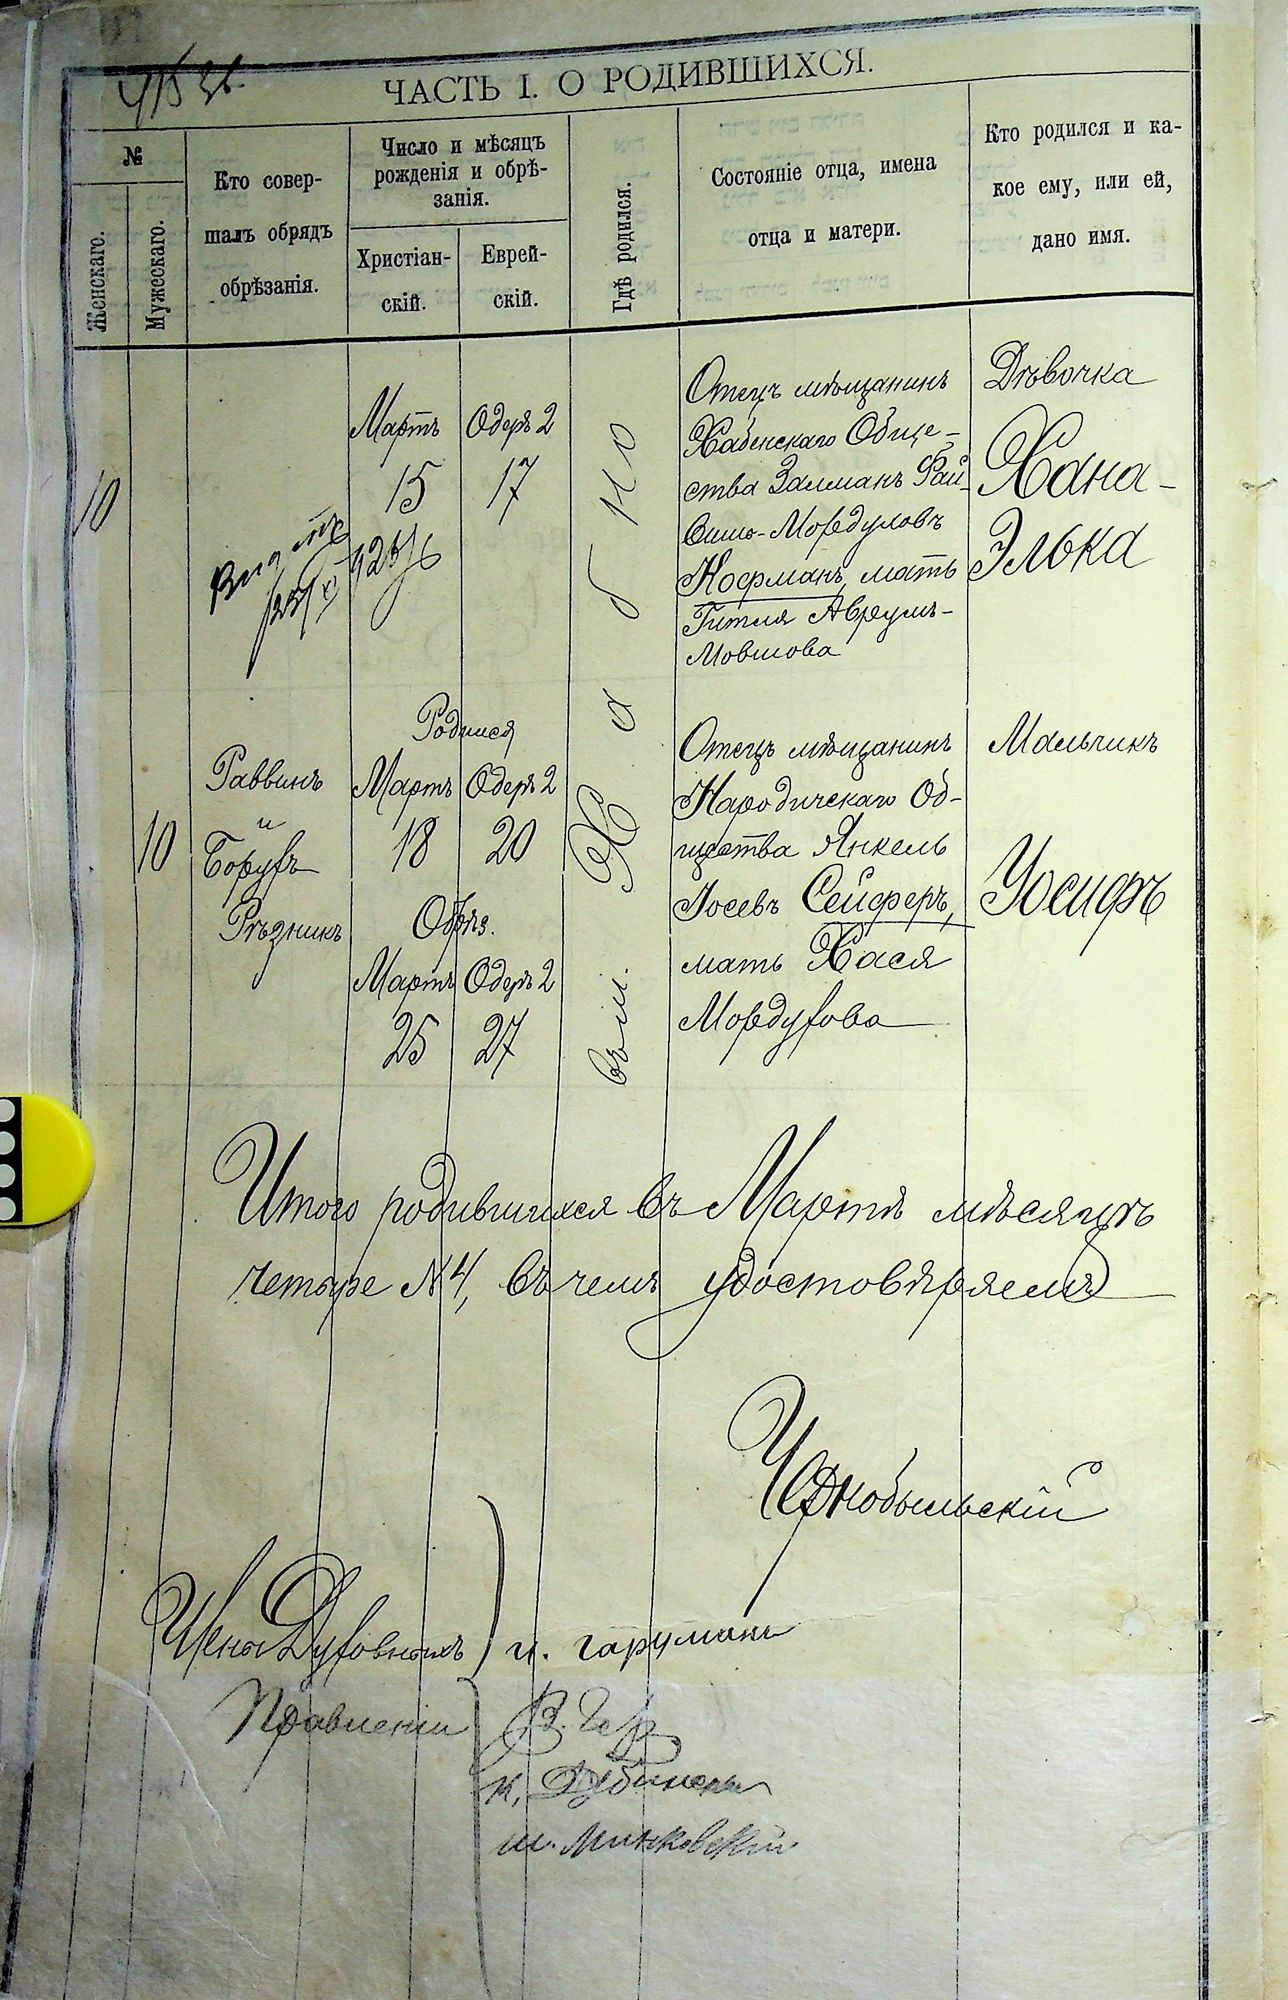 ЧАСТЬ I. О РОДИВШИХСЯ.
№
Женскаго.
Мужескаго.
Кто совер-
шалъ обрядъ
обрѣзанія.
Число и мѣсяцъ
рожденія и обрѣ-
занія.
Христіан-
скій.
Еврей-
скій.
Гдѣ родился.
Состояніе отца, имена
отца и матери.
Кто родился и ка-
кое ему, или ей,
дано имя.
10
Мартъ
15
Одеръ 2
17
въ м. Хабно
Отецъ мѣщанинъ
Хабенскаго Обще-
ства Залманъ Фай-
вишъ-Мордуховъ
Кофманъ, мать
Гитля Аврумъ-
Мовшова
Дѣвочка
Хана-
Элька
10
Раввинъ
и
Борухъ
Рѣзникъ
Родился
Мартъ
18
Одеръ 2
20
Обрѣз.
Мартъ
25
Одеръ 2
27
Отецъ мѣщанинъ
Народичскаго Об-
щества Янкель
Іосевъ Сейферъ,
мать Хася
Мордухова
Мальчикъ
Іосифъ
Итого родившихся въ Мартѣ мѣсяцѣ
четыре N 4, въ чемъ удостовѣряемъ
Чернобыльскій
Члены Духовнаго
Правленія
К. Дубинскій
Ш. Минковскій